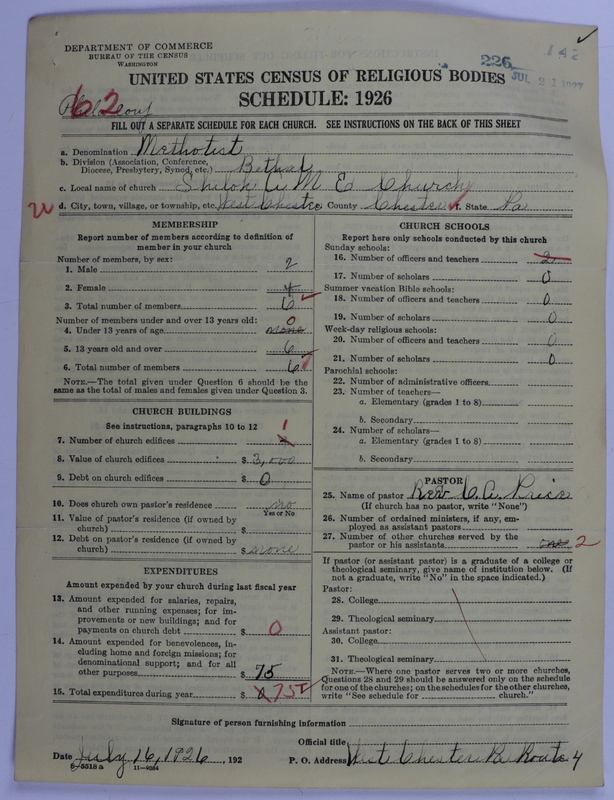 DEPARTMENT OF COMMERCE
BUREAU OF THE CENSUS
WASHINGTON
226
142
JUL 21 1927
UNITED STATES CENSUS OF RELIGIOUS BODIES
SCHEDULE: 1926
62
FILL OUT A SEPARATE SCHEDULE FOR EACH CHURCH. SEE INSTRUCTIONS ON THE BACK OF THIS SHEET
a. Denomination Methodist
b. Division (Association, Conference,
Diocese, Presbytery, Synod, etc.) Bethel
c. Local name of church Shiloh A M E Church
d. City, town, village, or township, etc. West Chester County Chester f. State Pa
MEMBERSHIP
Report number of members according to definition of
member in your church
Number of members, by sex:
1. Male 2
2. Female 4
3. Total number of members 6
Number of members under and over 13 years old: 0
4. Under 13 years of age none
5. 13 years old and over 6
6. Total number of members 6
NOTE.—The total given under Question 6 should be the
same as the total of males and females given under Question 3.
CHURCH BUILDINGS
See instructions, paragraphs 10 to 12 1
7. Number of church edifices
8. Value of church edifices $ 3,000
9. Debt on church edifices $ 0
10. Does church own pastor's residence no
Yes or No
11. Value of pastor's residence (if owned by
church) $
12. Debt on pastor's residence (if owned by
church) $ none
EXPENDITURES
Amount expended by your church during last fiscal year
13. Amount expended for salaries, repairs,
and other running expenses; for im-
provements or new buildings; and for
payments on church debt $ 0
14. Amount expended for benevolences, in-
cluding home and foreign missions; for
denominational support; and for all
other purposes $ 75
15. Total expenditures during year $ 0 75
CHURCH SCHOOLS
Report here only schools conducted by this church
Sunday schools:
16. Number of officers and teachers 2
17. Number of scholars 0
Summer vacation Bible schools:
18. Number of officers and teachers 0
19. Number of scholars 0
Week-day religious schools:
20. Number of officers and teachers 0
21. Number of scholars 0
Parochial schools:
22. Number of administrative officers
23. Number of teachers—
a. Elementary (grades 1 to 8)
b. Secondary
24. Number of scholars—
a. Elementary (grades 1 to 8)
b. Secondary
PASTOR
25. Name of pastor Rev C. A.
(If church has no pastor, write "None")
26. Number of ordained ministers, if any, em-
ployed as assistant pastors
27. Number of other churches served by the
pastor or his assistants 2
If pastor (or assistant pastor) is a graduate of a college or
theological seminary, give name of institution below. (If
not a graduate, write "No" in the space indicated.)
Pastor:
28. College
29. Theological seminary
Assistant pastor:
30. College
31. Theological seminary
NOTE.—Where one pastor serves two or more churches,
Questions 28 and 29 should be answered only on the schedule
for one of the churches; on the schedules for the other churches,
write "See schedule for church."
Signature of person furnishing information
Official title
Date July 16, 1926, 192 P. O. Address West Chester Pa Route 4
8-5518 a 11-9264